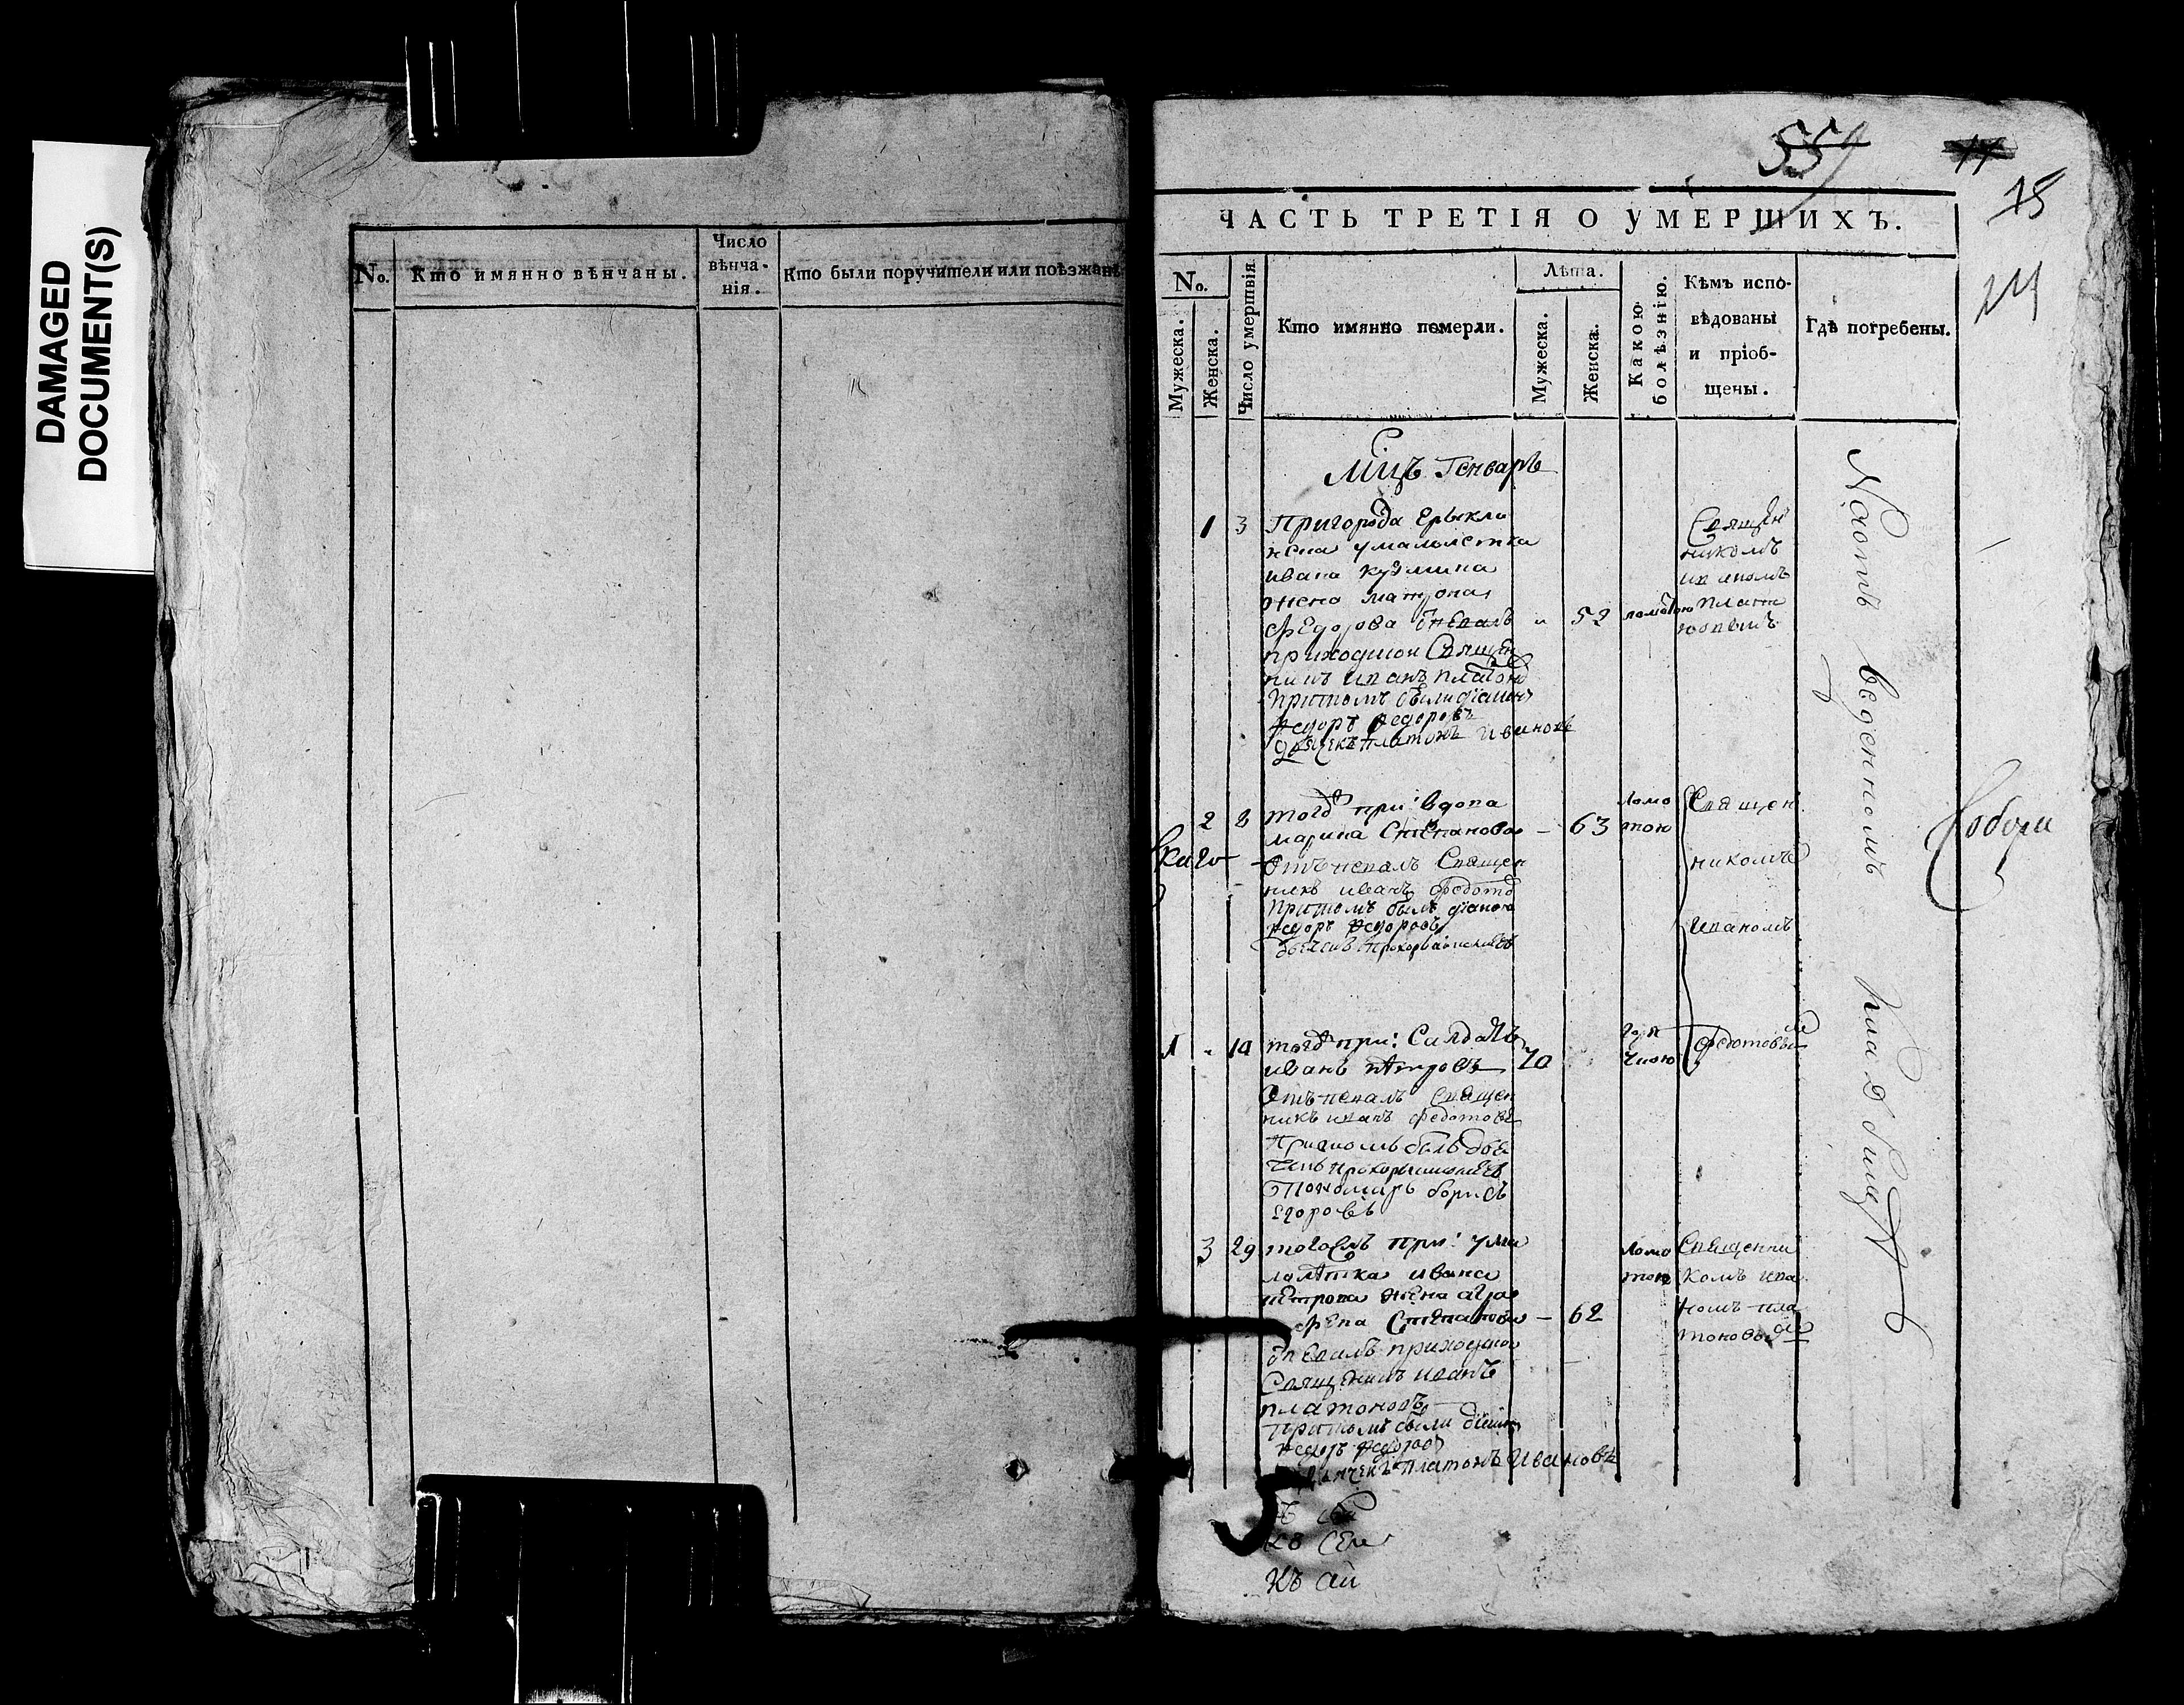 DAMAGED
DOCUMENT(S)
No.
Кто имянно вѣнчаны.
Число
вѣнча-
нія.
Кто были поручители или поѣзжанѣ
559
11
15
ЧАСТЬ ТРЕТІЯ О УМЕРШИХЪ.
No.
Мужеска.
Женска.
Число умертвія
Кто имянно померли.
Лѣта.
Мужеска.
Женска.
Какою
болѣзнію.
Кѣмъ испо-
вѣдованы
и пріоб-
щены.
Гдѣ погребены.
Мцъ Генварь
1 3 Пригорода Ерыкли
нска умалолетка
ивана кузмина
жена матрона
Федорова 52 ломотою
приходской Священ
никъ иванъ платоно
притомъ были діаконъ
федоръ федоровъ
дьячекъ платонъ ивановъ
Священ
никомъ
иваномъ
плато
новымъ
2 8 тогоже при: вдова
марина Степанова – 63 ломо
тою
отъпевалъ Священ
никъ иванъ федото
притомъ былъ діаконъ
федоръ федоровъ
Священ
никомъ
иваномъ
федотовым
1 10 тогоже при: Салдатъ
иванъ петровъ 70 горя
чкою
отъпевалъ Священ
никъ иванъ федотовъ
притомъ былъ дья
чекъ
пономарь борисъ
егоровъ
3 29 тогожъ при: ума
лолѣтка ивана
петрова жена агра
фена Степанова – 62
ломо
тою
отпевалъ приходской
Священникъ иванъ
платоновъ
притомъ были діакон
федоръ федоров
дьячекъ платонъ ивановъ
Священни
комъ ива
номъ пла
тоновым
На отъведенномъ кладбищѣ
Собори
къ
къ